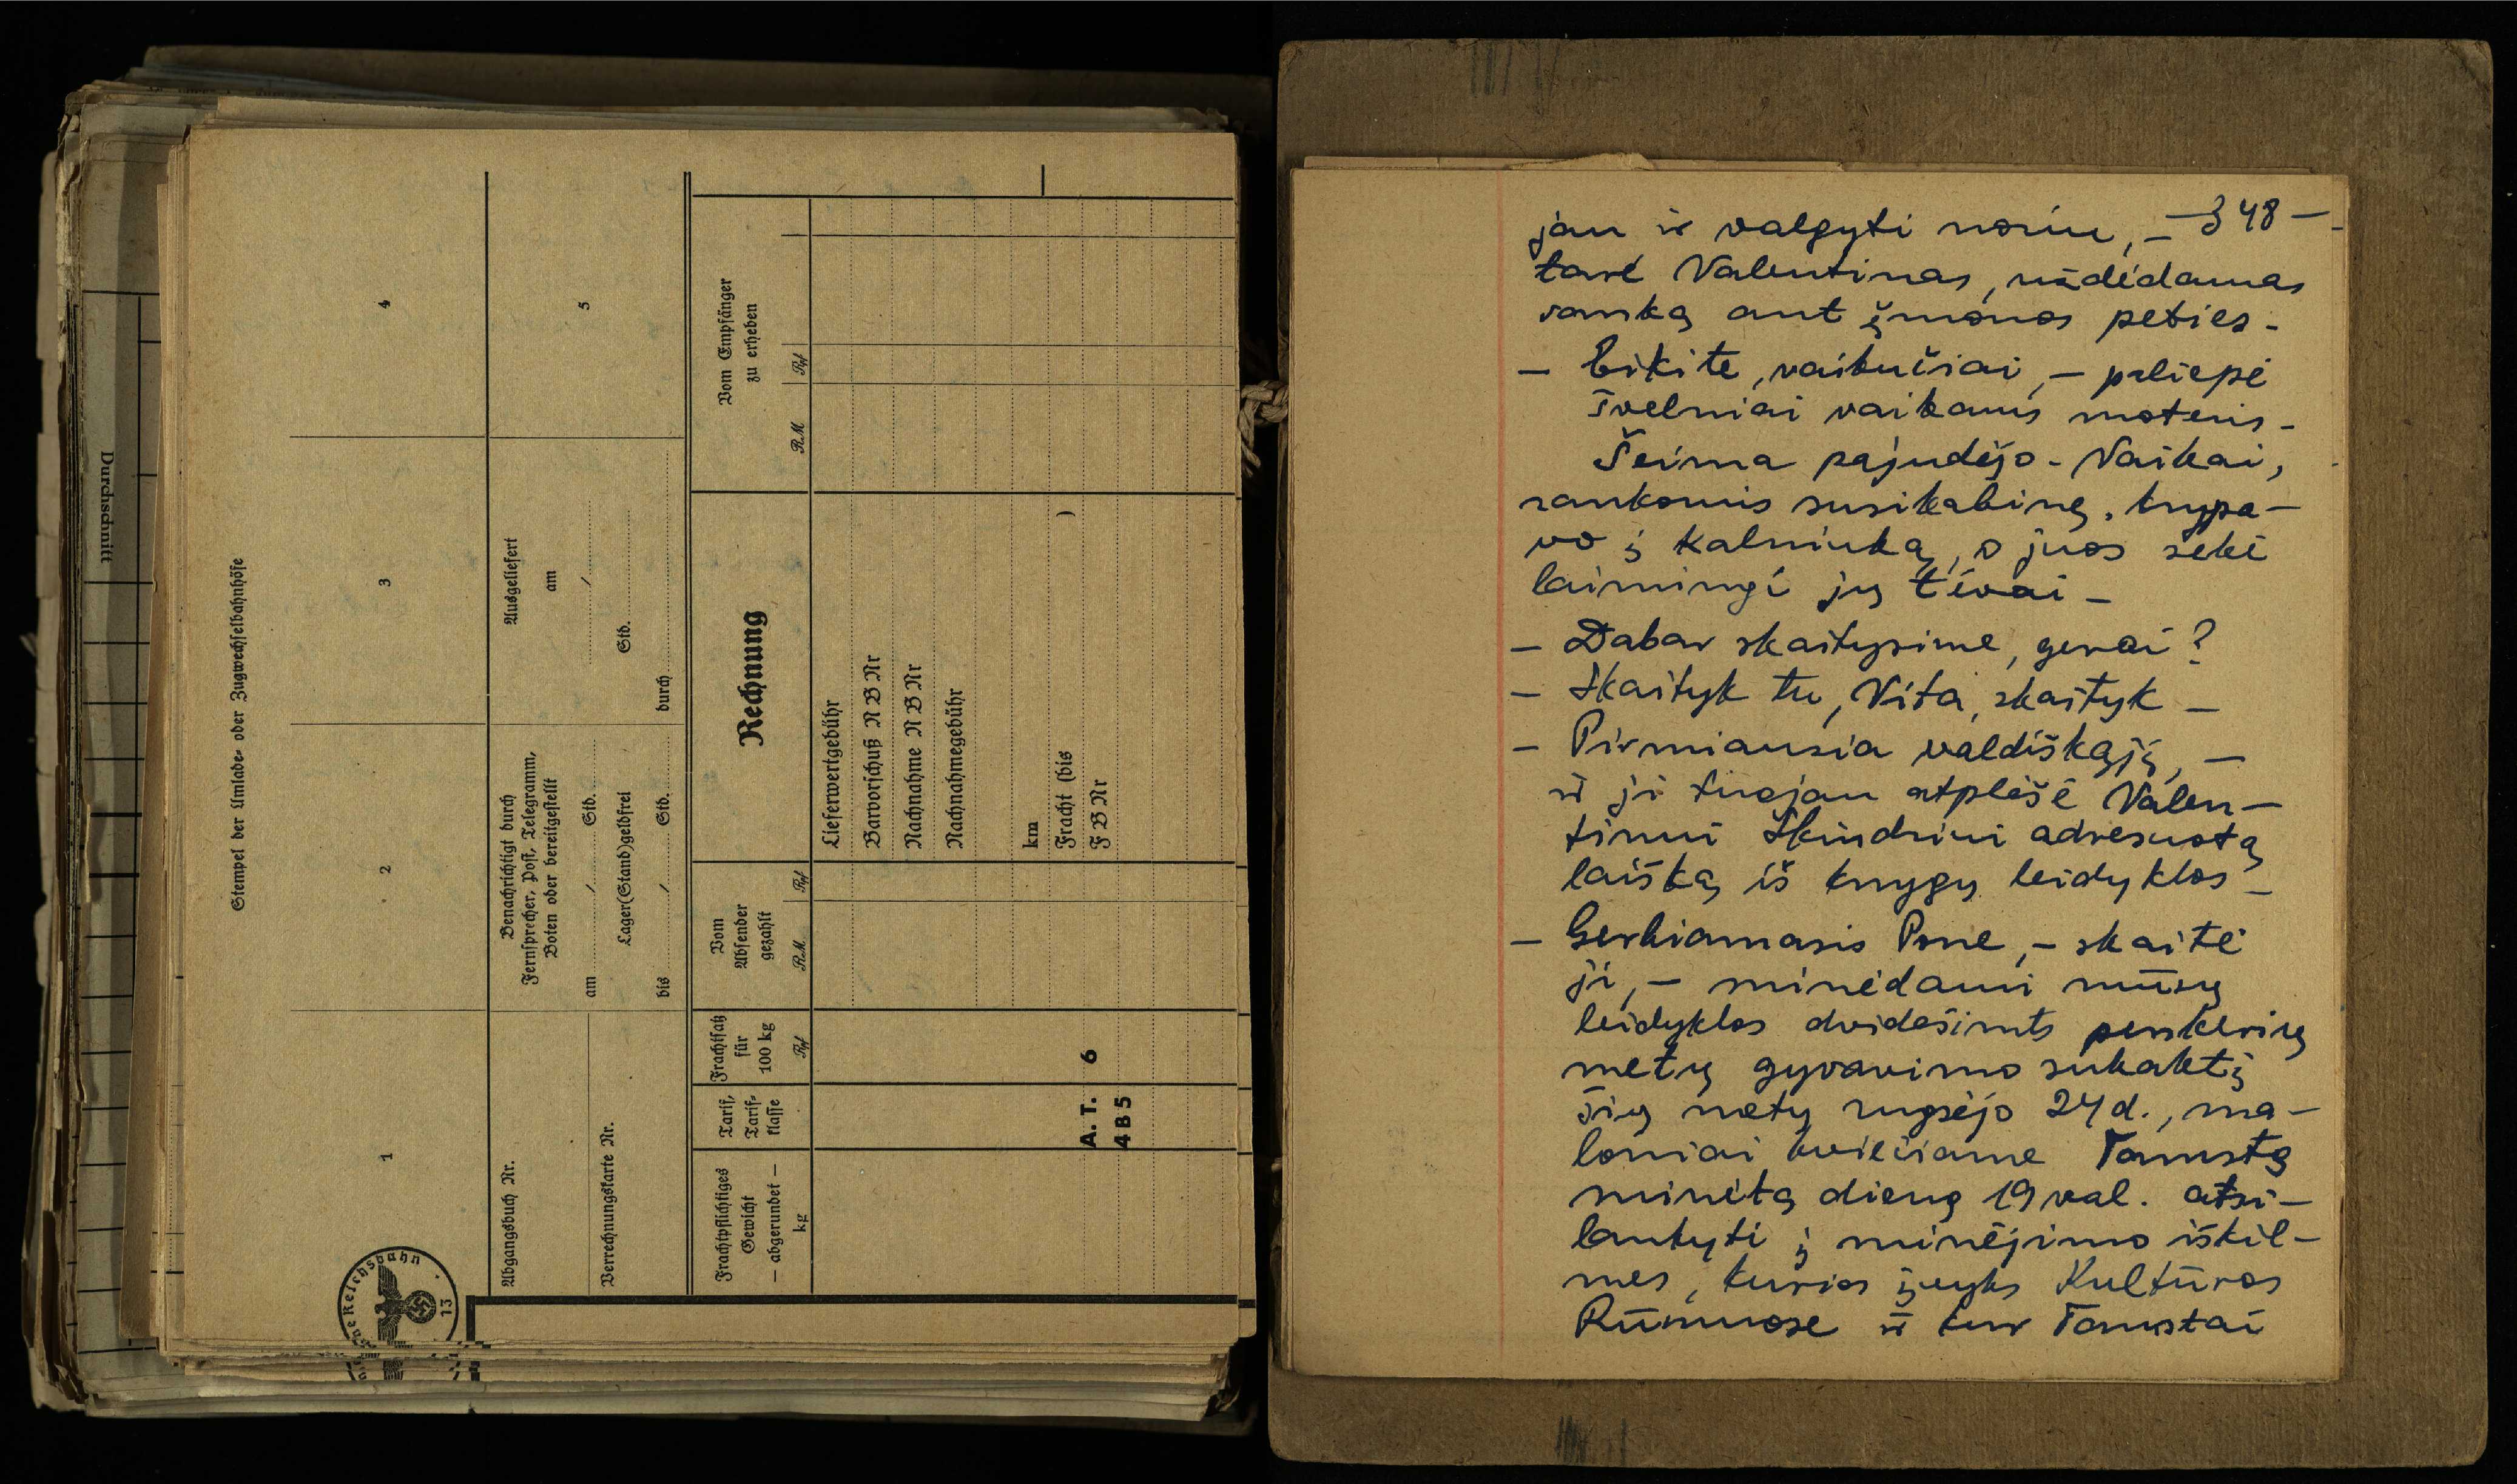 Durchschnitt
Stempel der Umlade- oder Zugwechselbahnhöfe
1
2
3
4
Abgangsbuch Nr.
Verrechnungskarte Nr.
Benachrichtigt durch
Fernsprecher, Post, Telegramm,
Boten oder bereitgestellt
am / Std.
Lager(Stand)geldfrei
bis / Std.
Ausgeliefert
am
/
Std.
durch
5
Frachtpflichtiges
Gewicht
— abgerundet —
kg
Tarif,
Tarif-
klasse
Frachtsatz
für
100 kg
Rpf
Vom
Absender
gezahlt
RM Rpf
Rechnung
Vom Empfänger
zu erheben
RM Rpf
Lieferwertgebühr
Barvorschuß N B Nr
Nachnahme N B Nr
Nachnahmegebühr
km
Fracht (bis )
F B Nr
A. T. 6
4 B 5
Reichsbahn
13
— 348 —
jau ir valgyti noriu, —
tarė Valentinas, uždėdamas
ranką ant žmonos peties.
— Eikite, vaikučiai, — paliepė
švelniai vaikams moteris.
Šeima pajudėjo. Vaikai,
rankomis susikabinę, krypa-
vo į kalniuką, o juos sekė
laimingi jų tėvai.
— Dabar skaitysime, gerai?
— Skaityk tu, Vita, skaityk.
— Pirmiausia valdiškąjį, —
ir ji tuojau atplėšė Valen-
tinui Skindriui adresuotą
laišką iš knygų leidyklos.
— Gerbiamasis Pone, — skaitė
ji, — minėdami mūsų
leidyklos dvidešimts penkerių
metų gyvavimo sukaktį
šių metų rugsėjo 24 d., ma-
loniai kviečiame Tamstą
minėtą dieną 19 val. atsi-
lankyti į minėjimo iškil-
mes, kurios įvyks Kultūros
Rūmuose ir kur Tamstai